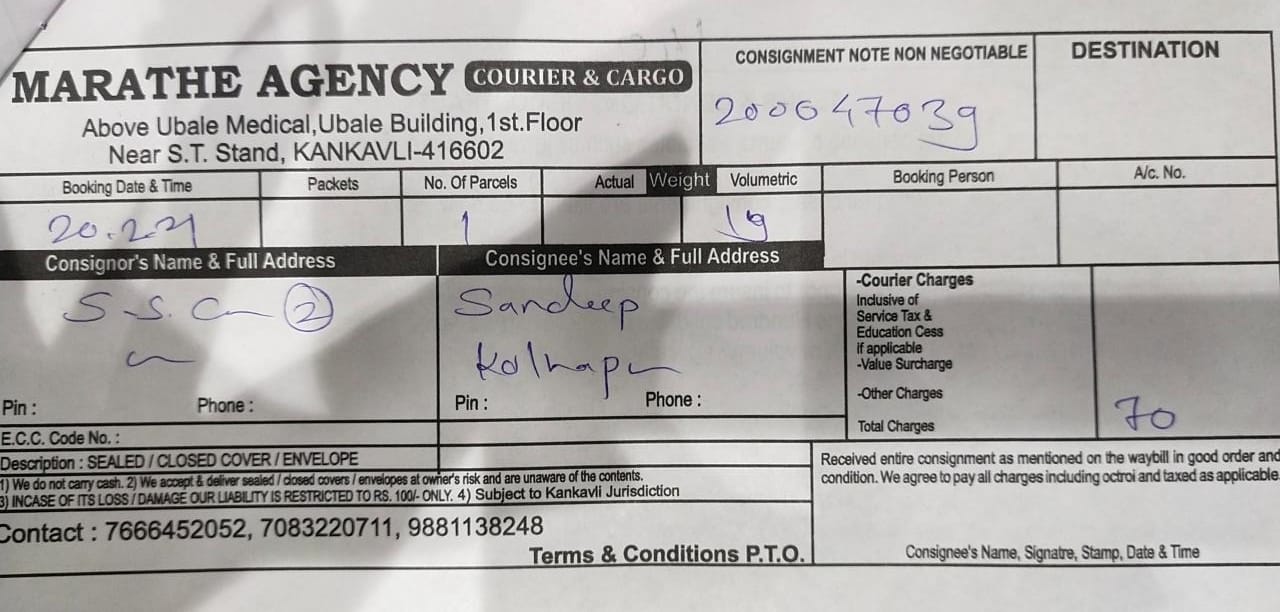 MARATHE AGENCY COURIER & CARGO
Above Ubale Medical,Ubale Building,1st.Floor
Near S.T. Stand, KANKAVLI-416602
CONSIGNMENT NOTE NON NEGOTIABLE
200647039
DESTINATION
Booking Date & Time Packets No. Of Parcels Actual Weight Volumetric Booking Person A/c. No.
20.2.21 1
Consignor's Name & Full Address
S.S.C 2
Pin : Phone :
Consignee's Name & Full Address
Sandeep
Kolhapur
Pin : Phone :
-Courier Charges
Inclusive of
Service Tax &
Education Cess
if applicable
-Value Surcharge
-Other Charges
Total Charges 70
E.C.C. Code No. :
Description : SEALED / CLOSED COVER / ENVELOPE
1) We do not carry cash. 2) We accept & deliver sealed / closed covers / envelopes at owner's risk and are unaware of the contents.
3) INCASE OF ITS LOSS / DAMAGE OUR LIABILITY IS RESTRICTED TO RS. 100/- ONLY. 4) Subject to Kankavli Jurisdiction
Contact : 7666452052, 7083220711, 9881138248
Terms & Conditions P.T.O.
Received entire consignment as mentioned on the waybill in good order and
condition. We agree to pay all charges including octroi and taxed as applicable.
Consignee's Name, Signatre, Stamp, Date & Time